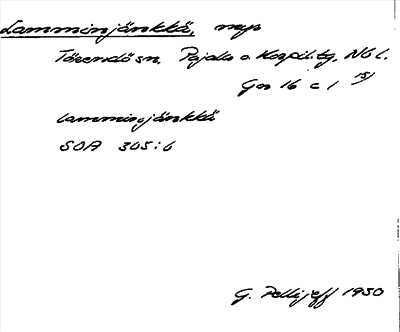 Lamminjänkkä, myr
Tärendö sn, Pajala o. Korpil. tg, Nb l.
Gn 16 c 1 15)
lamminjänkkä
SOA 305:6
G. Pellijeff 1950